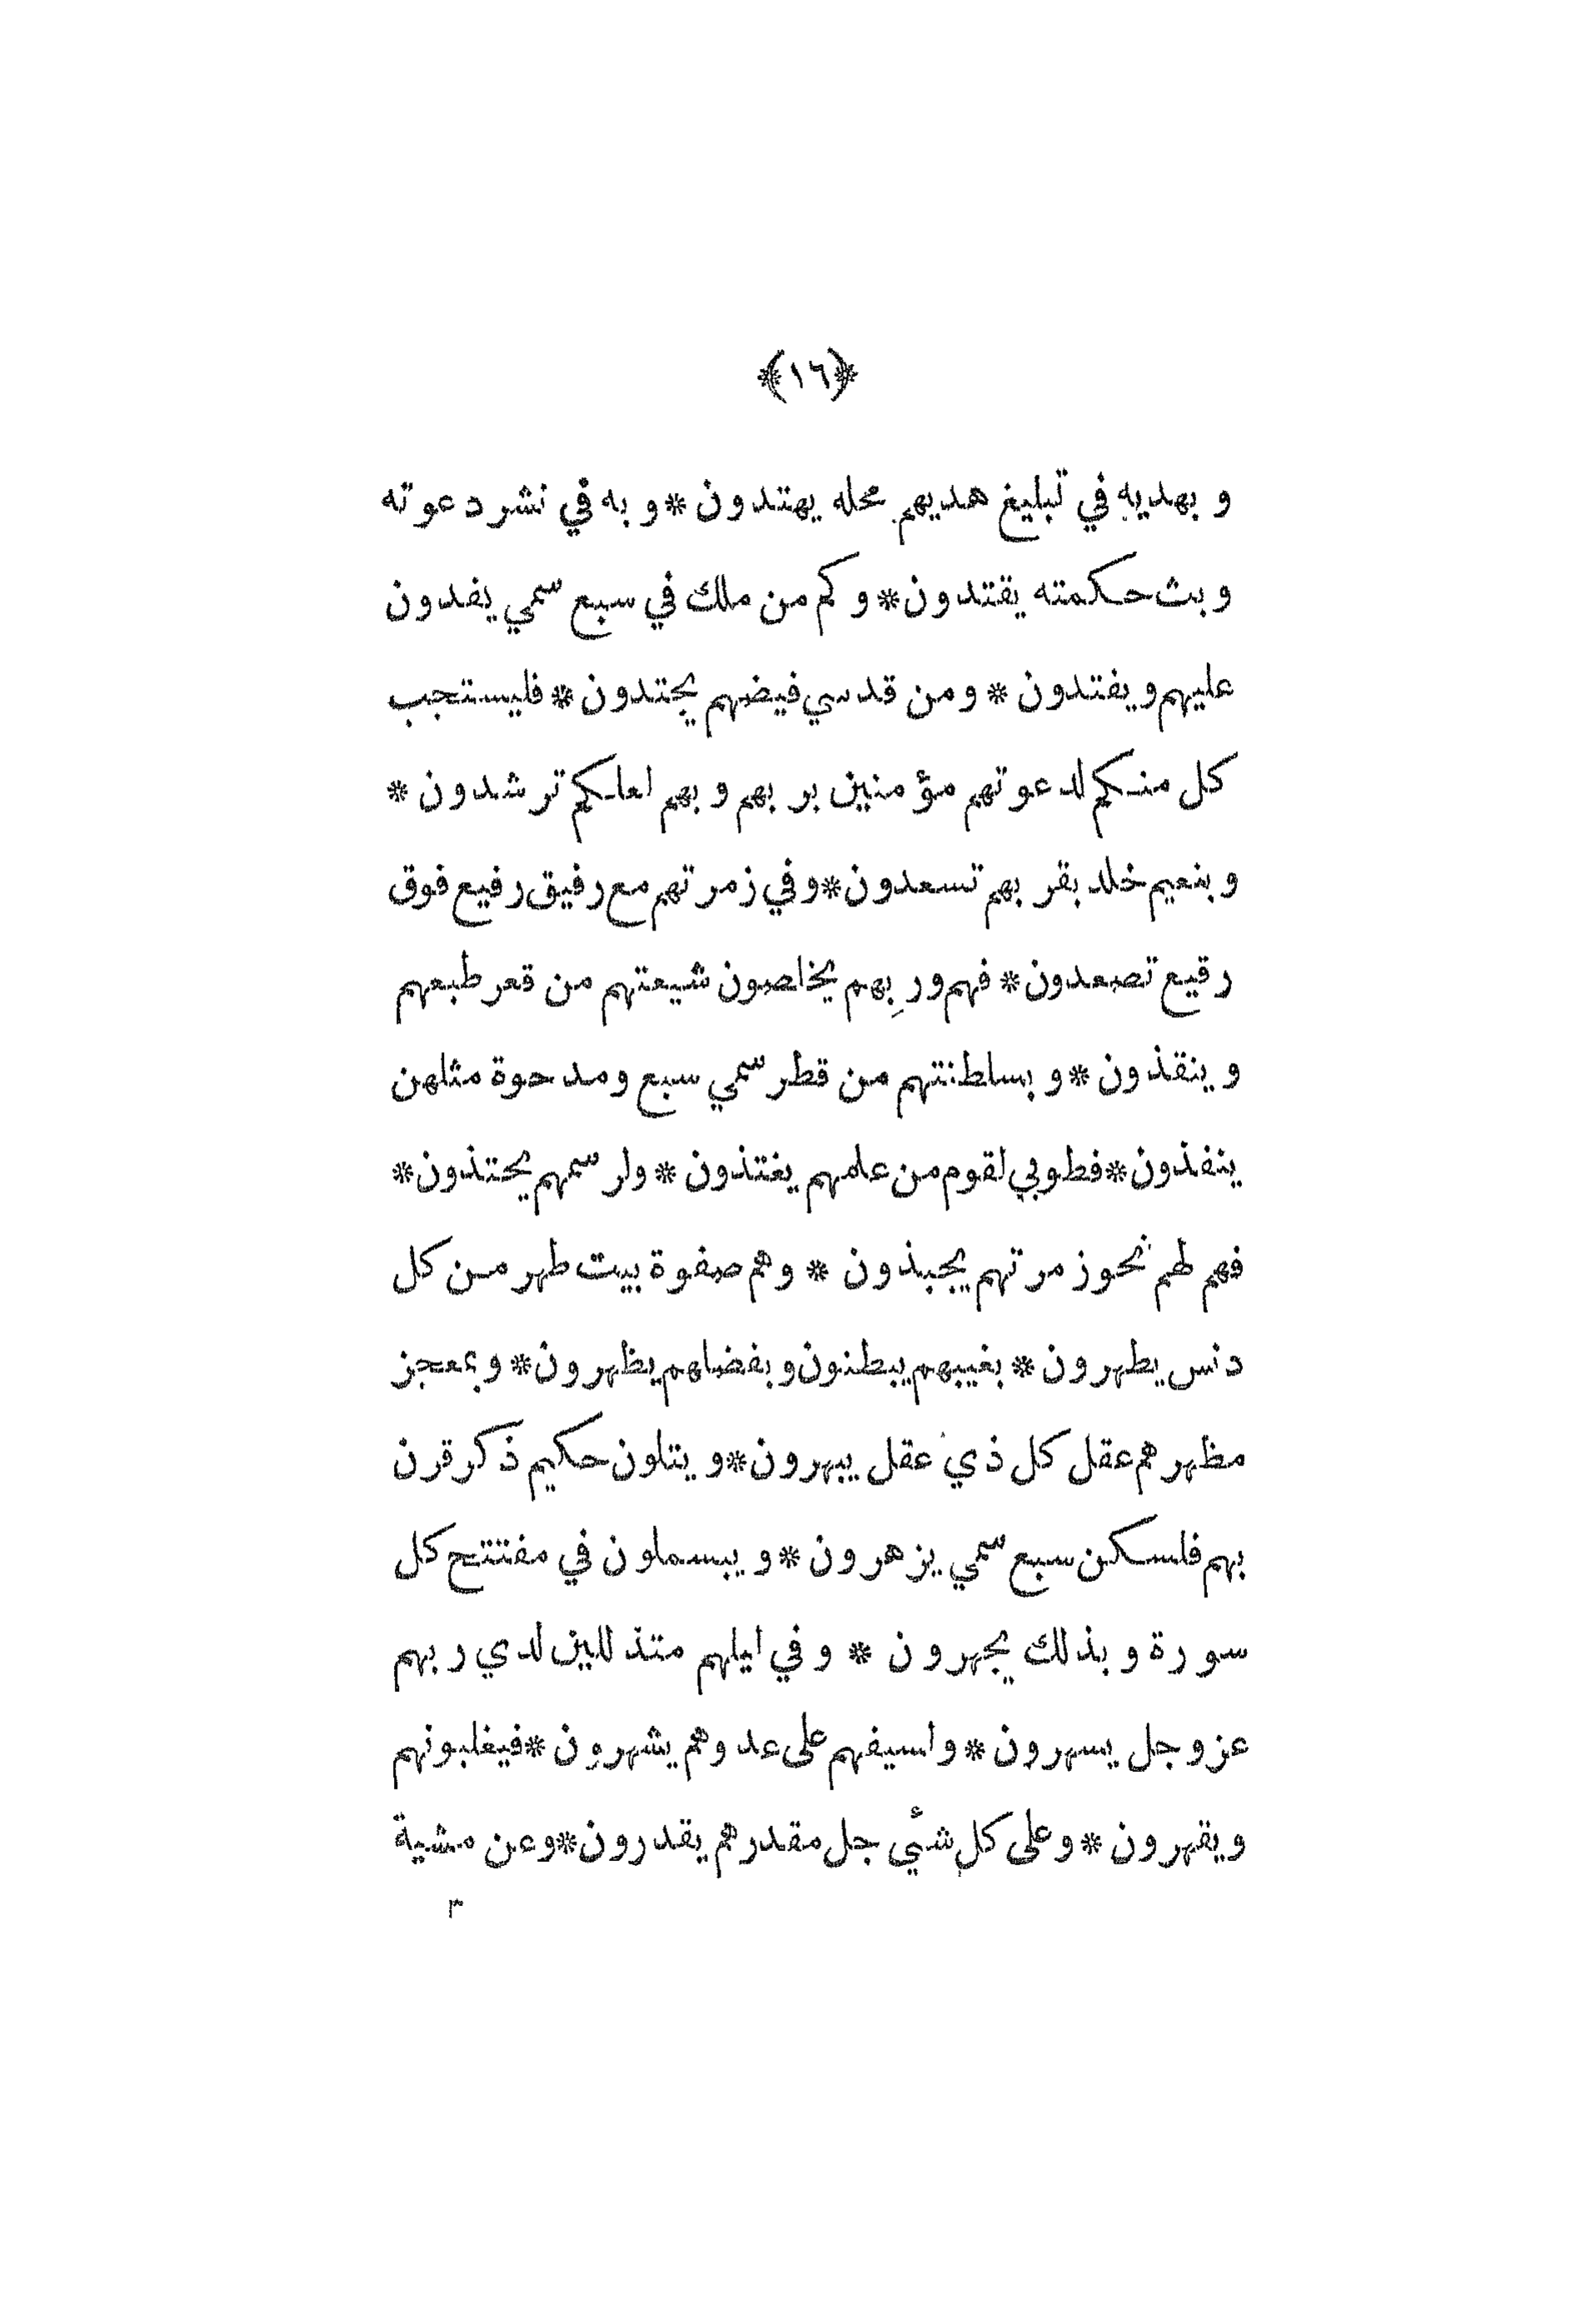 ﴿١٦﴾
و بهديه في تبليغ هديهم محله يهتدون * و به في نشر دعوته
و بث حكمته يقتدون * و كم من ملك في سبع سمي يفدون
عليهم و يفتدون * و من قدسي فيضهم يجتدون * فليستجب
كل منكم لدعوتهم مؤمنين بربهم و بهم لعلكم ترشدون *
و بنعيم خلد بقربهم تسعدون * و في زمرتهم مع رفيق رفيع فوق
رقيع تصعدون * فهم وربهم يخلصون شيعتهم من قعر طبعهم
و ينقذون * و بسلطنتهم من قطر سمي سبع و مدحوة مثلهن
ينفذون * فطوبي لقوم من علمهم يغتذون * ولرسمهم يحتذون *
فهم لهم نحو زمرتهم يجبذون * و هم صفوة بيت طهر من كل
دنس يطهرون * بغيبهم يبطنون و بفضلهم يظهرون * و بمعجز
مظهرهم عقل كل ذي عقل يبهرون * و يتلون حكيم ذكر قرن
بهم فلسكن سبع سمي يزهرون * و يبسملون في مفتتح كل
سورة و بذلك يجهرون * و في ليلهم متذللين لدي ربهم
عز و جل يسهرون * و لسيفهم على عدوهم يشهرون * فيغلبونهم
و يقهرون * و على كل شئي جل مقدرهم يقدرون * و عن مشية
٣